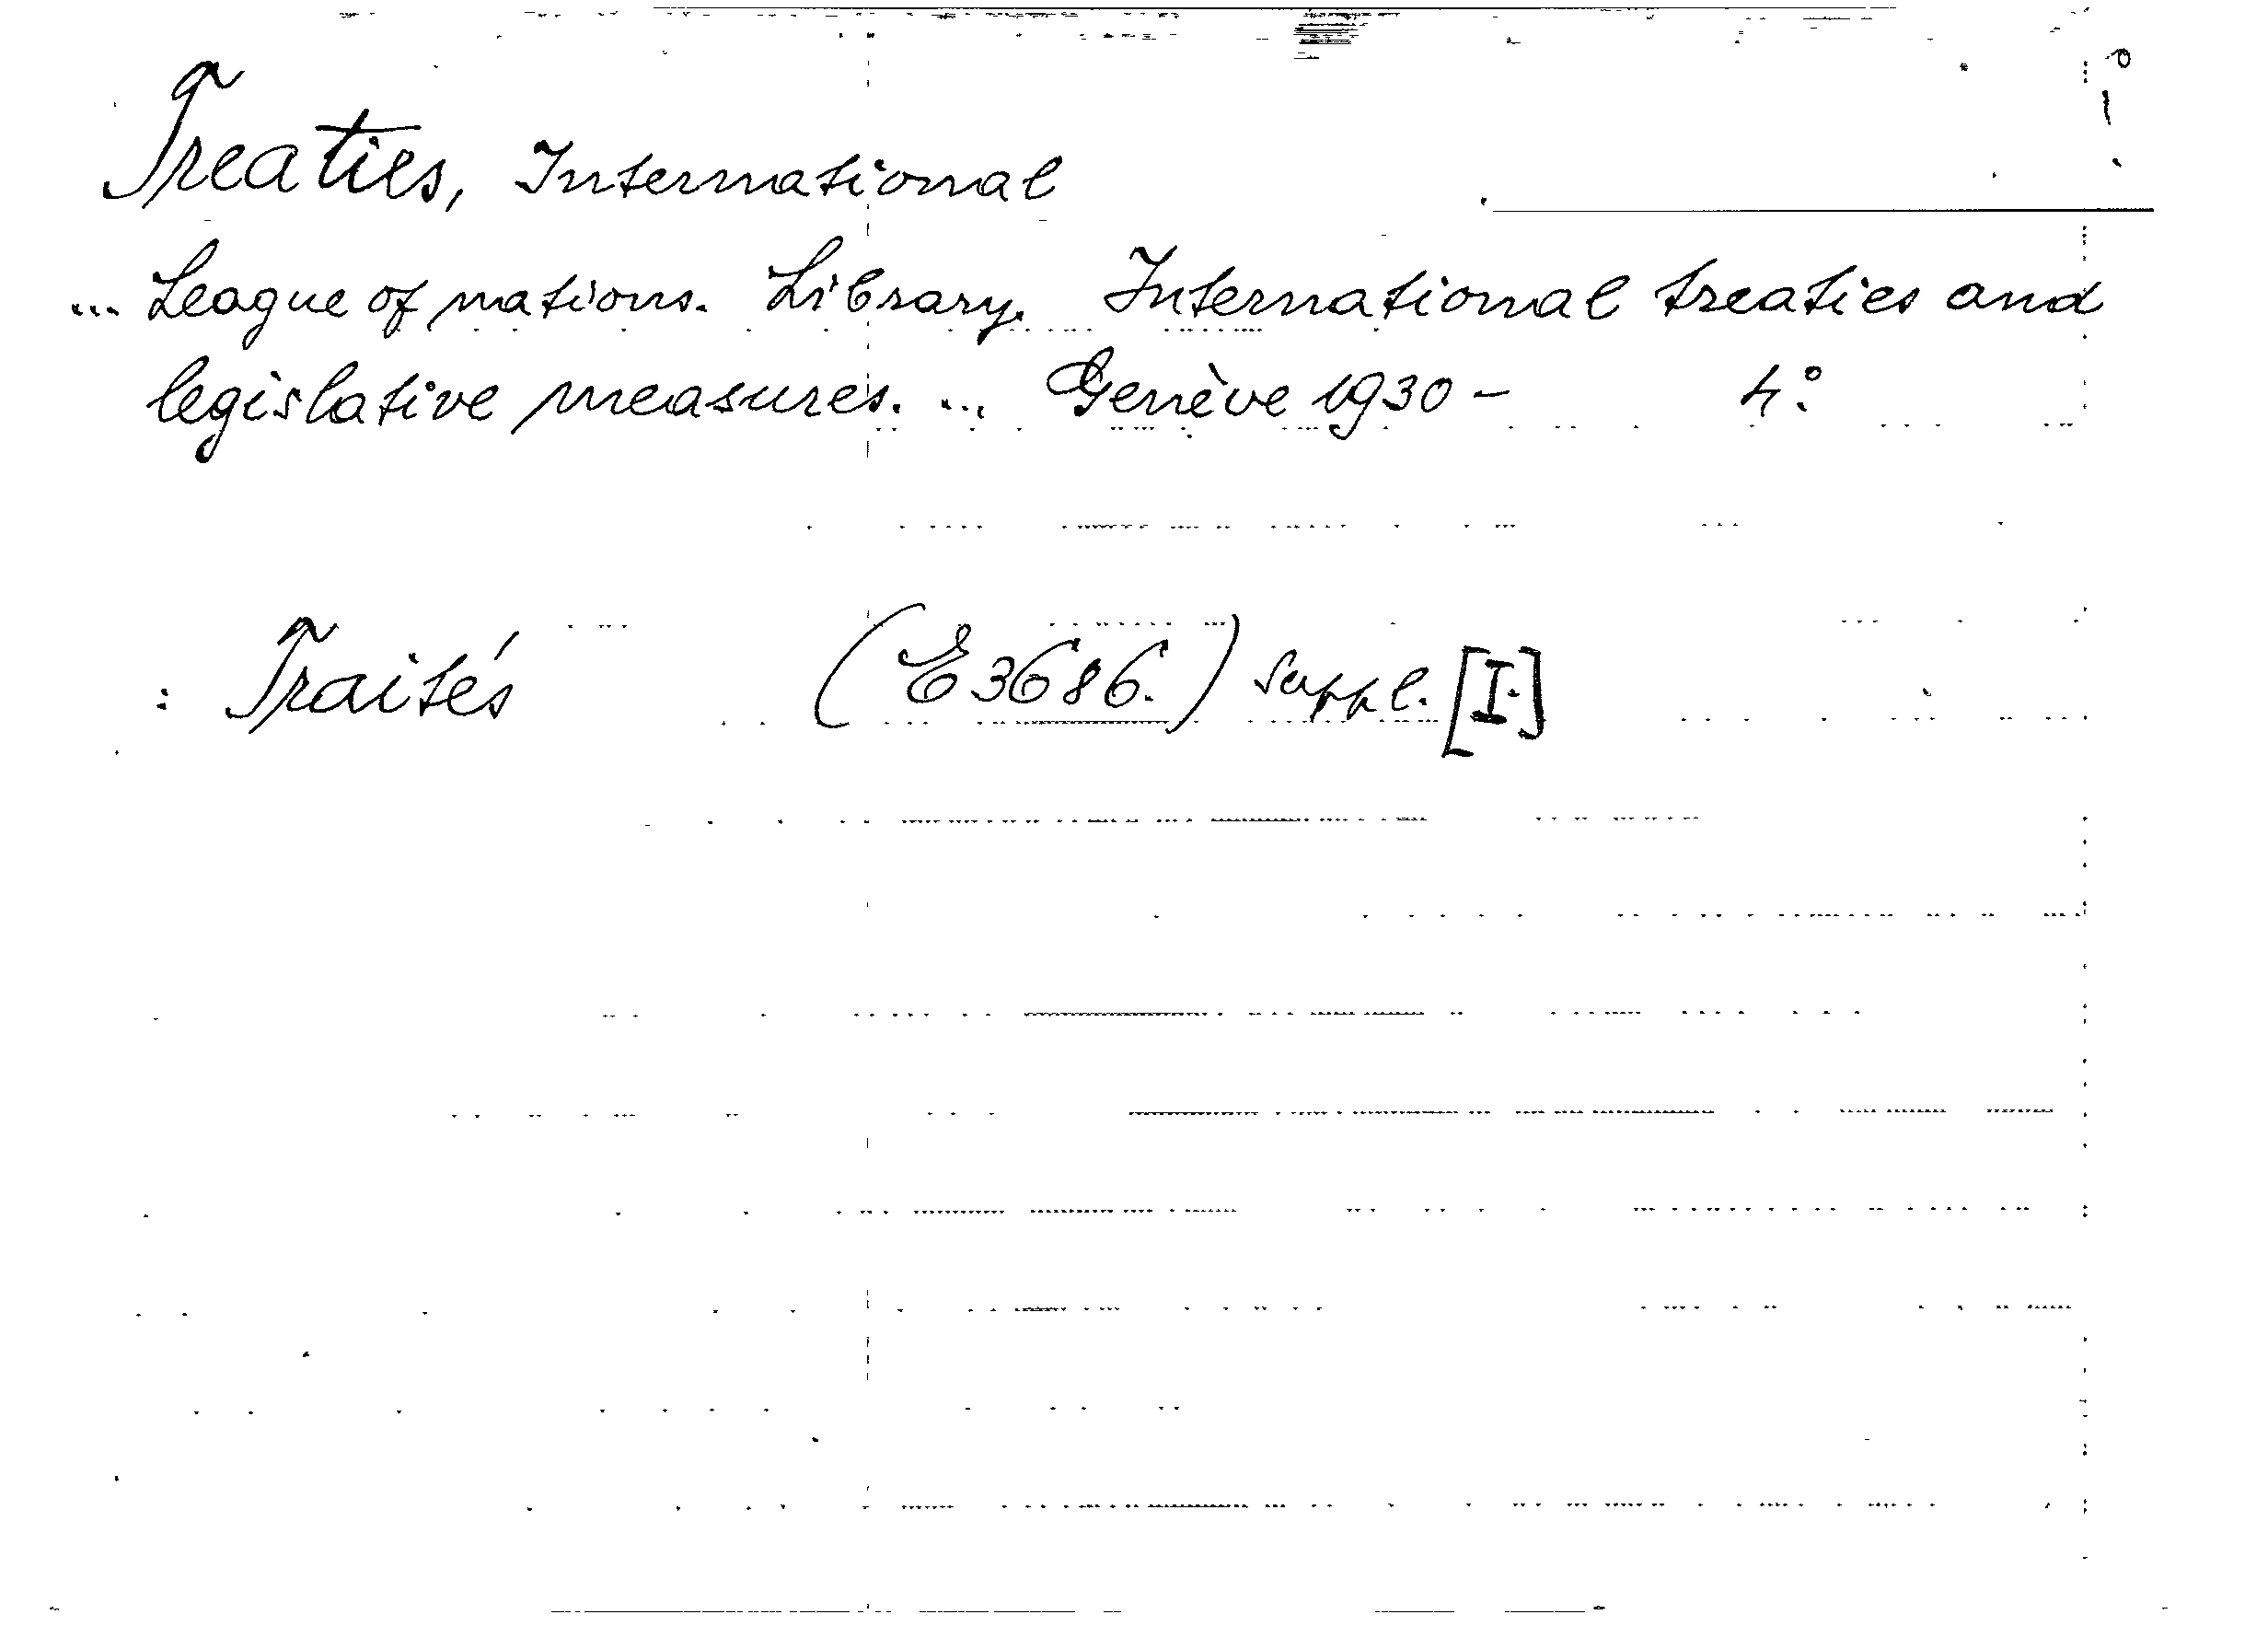 Treaties, International
... League of nations. Library. International treaties and
legislative measures. ... Genève 1930 – 4°.
: Traités (E3686.) suppl. [I.]